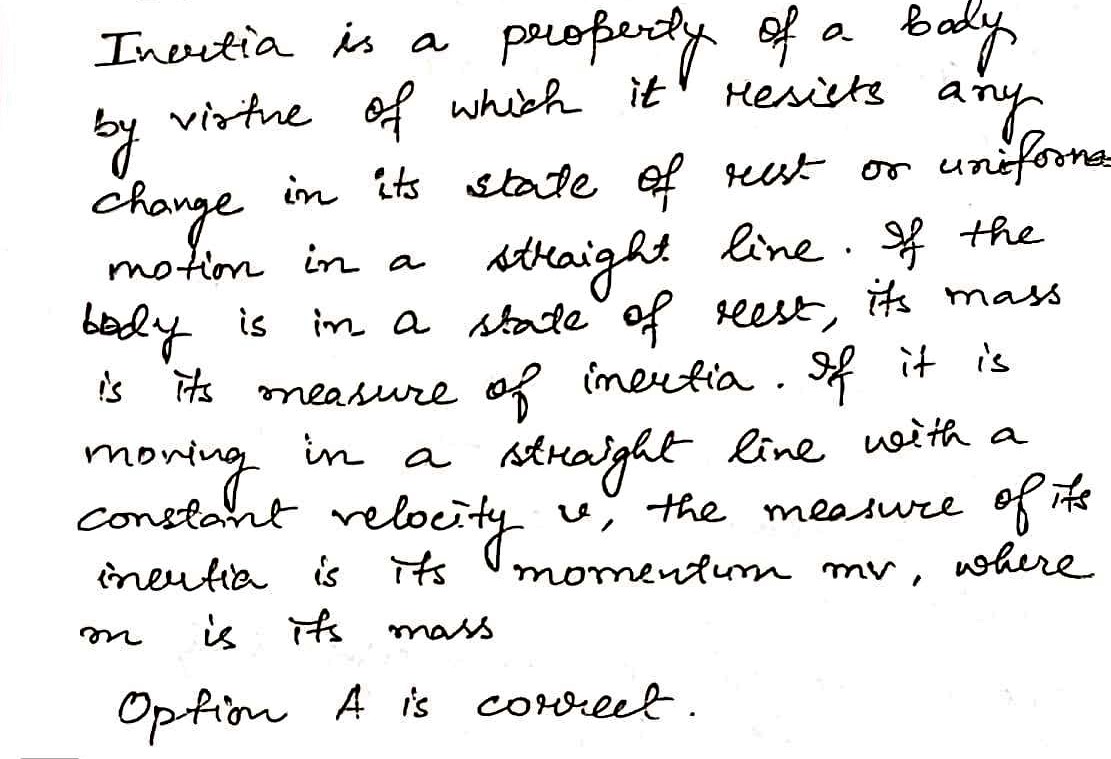 Inertia is a property of a body
by virtue of which it resists any
change in its state of rest or uniform
motion in a straight line. If the
body is in a state of rest, its mass
is its measure of inertia. If it is
moving in a straight line with a
constant velocity v, the measure of its
inertia is its momentum mv, where
m is its mass
Option A is correct.